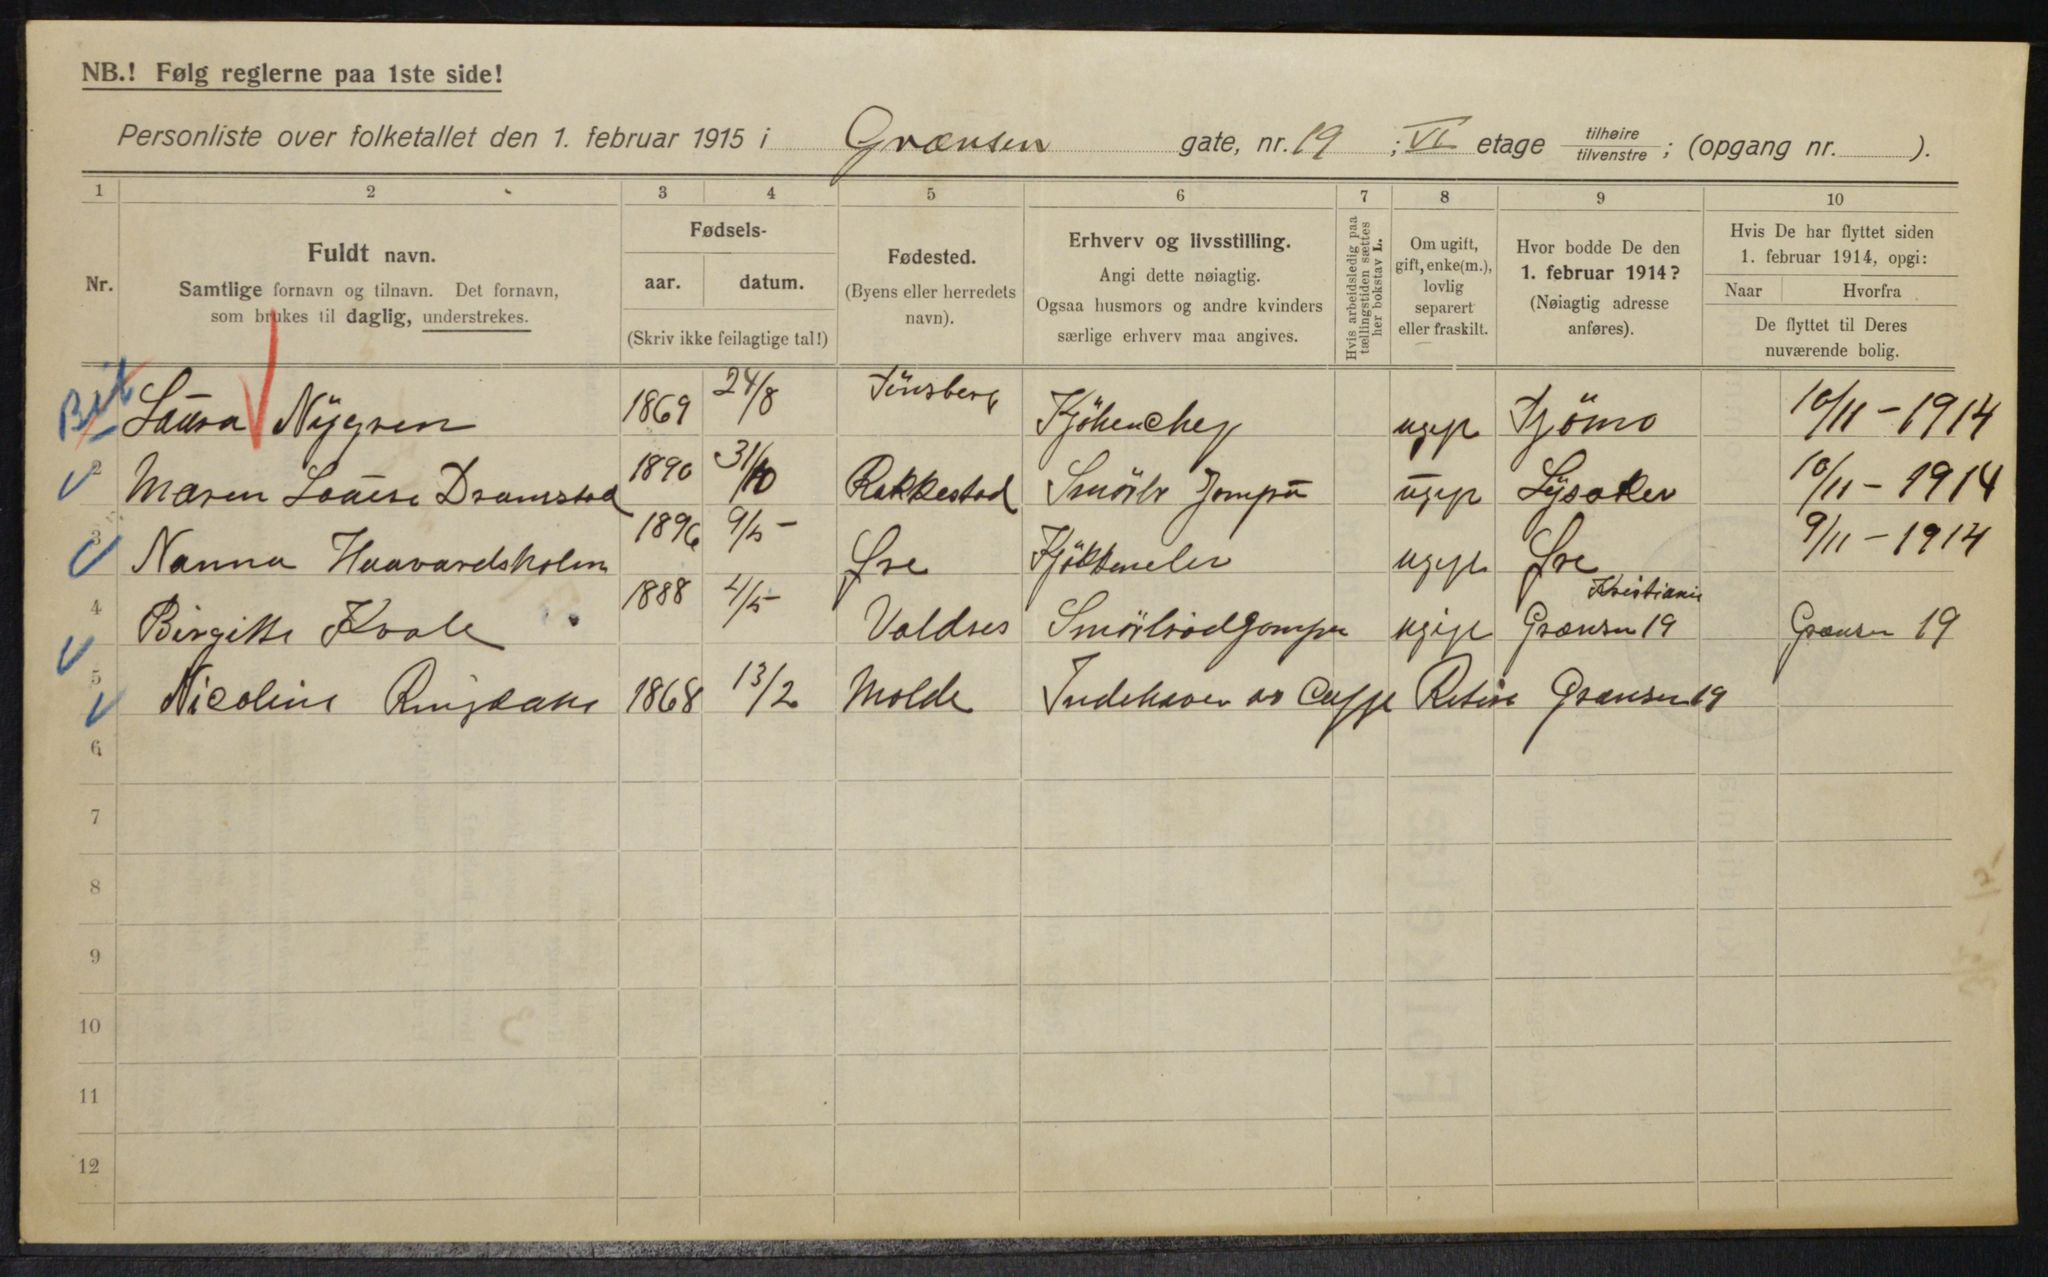 NB.! Følg reglerne paa 1ste side!
Personliste over folketallet den 1. februar 1915 i Grænsen gate, nr. 19 ; VI etage tilhøire tilvenstre ; (opgang nr. ).
1 2 3 4 5 6 7 8 9 10
Nr.
Fuldt navn.
Samtlige fornavn og tilnavn. Det fornavn,
som brukes til daglig, understrekes.
Fødsels-
aar. datum.
(Skriv ikke feilagtige tal!)
Fødested.
(Byens eller herredets
navn).
Erhverv og livsstilling.
Angi dette nøiagtig.
Ogsaa husmors og andre kvinders
særlige erhverv maa angives.
Hvis arbeidsledig paa
tællingstiden sættes
her bokstav L.
Om ugift,
gift, enke(m.),
lovlig
separert
eller fraskilt.
Hvor bodde De den
1. februar 1914?
(Nøiagtig adresse
anføres).
Hvis De har flyttet siden
1. februar 1914, opgi:
Naar Hvorfra
De flyttet til Deres
nuværende bolig.
Laura Nygren 1869 24/8 Tönsberg ugift Tjömo 10/11 - 1914
2 Maren Louise Dramstad 1890 31/10 Rakkestad Smörbr Jomfru ugift Lysaker 10/11 - 1914
3 Nanna Haavardsholm 1896 9/5 - Øre ugift Øre 9/11 - 1914
4 Birgitte Kvale 1888 4/5 - Valdres Smörbrödjomfru ugift Grænsen 19 Kristiania Grænsen 19
5 Nicoline 1868 13/2 Molde Indehaver av Caffe Grænsen 19
6
7
8
9
10
11
12